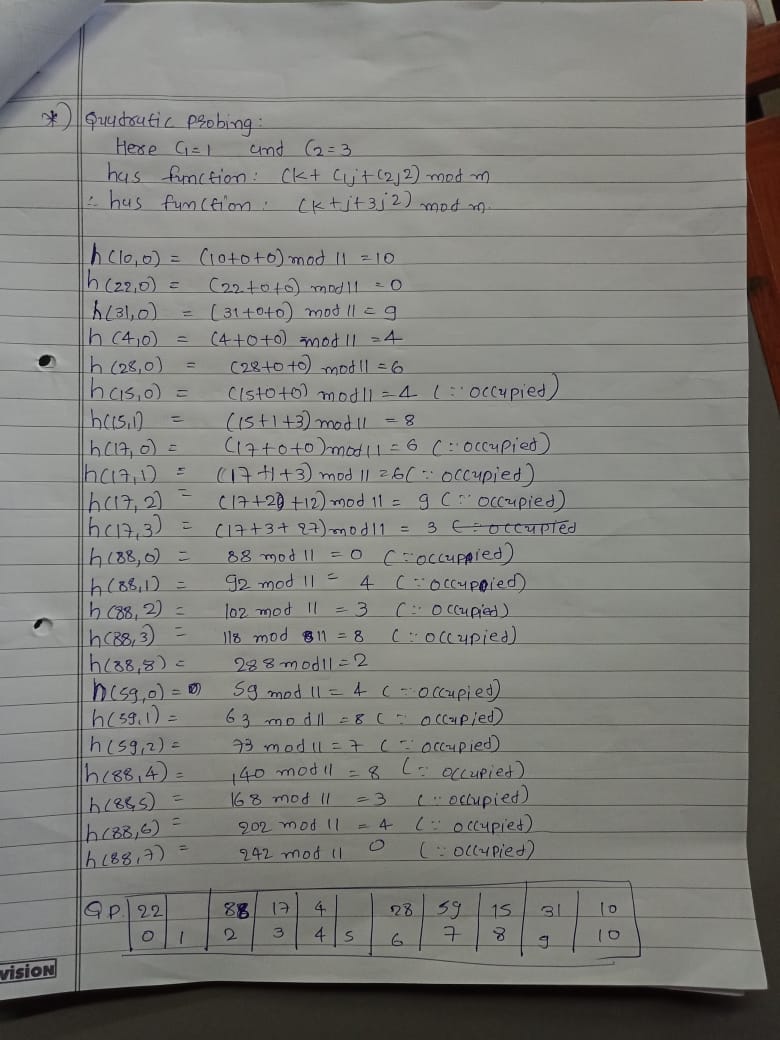 *) Quudratic probing:
Here C1=1 and C2=3
has function: (k+ C1j+C2j2) mod m
∴ has function: (k+j+3j2) mod m.
h(10,0) = (10+0+0) mod 11 =10
h(22,0) = (22+0+0) mod 11 = 0
h(31,0) = (31+0+0) mod 11 = 9
h(4,0) = (4+0+0) mod 11 =4
h(28,0) = (28+0+0) mod 11 =6
h(15,0) = (15+0+0) mod 11 =4 (∵ occupied)
h(15,1) = (15+1+3) mod 11 = 8
h(17,0) = (17+0+0) mod 11 = 6 (∵ occupied)
h(17,1) = (17+1+3) mod 11 =6 (∵ occupied)
h(17,2) = (17+2+12) mod 11 = 9 (∵ occupied)
h(17,3) = (17+3+27) mod 11 = 3 (∵ occupied
h(88,0) = 88 mod 11 = 0 (∵ occuppied)
h(88,1) = 92 mod 11 = 4 (∵ occuppied)
h(88,2) = 102 mod 11 = 3 (∵ occupied)
h(88,3) = 118 mod 11 = 8 (∵ occupied)
h(88,8) = 288 mod 11 = 2
h(59,0) = 59 mod 11 = 4 (∵ occupied)
h(59,1) = 63 mod 11 = 8 (∵ occupied)
h(59,2) = 73 mod 11 = 7 (∵ occupied)
h(88,4) = 140 mod 11 = 8 (∵ occupied)
h(88,5) = 168 mod 11 = 3 (∵ occupied)
h(88,6) = 202 mod 11 = 4 (∵ occupied)
h(88,7) = 242 mod 11 0 (∵ occupied)
QP 22 88 17 4 28 59 15 31 10
0 1 2 3 4 5 6 7 8 9 10
vision